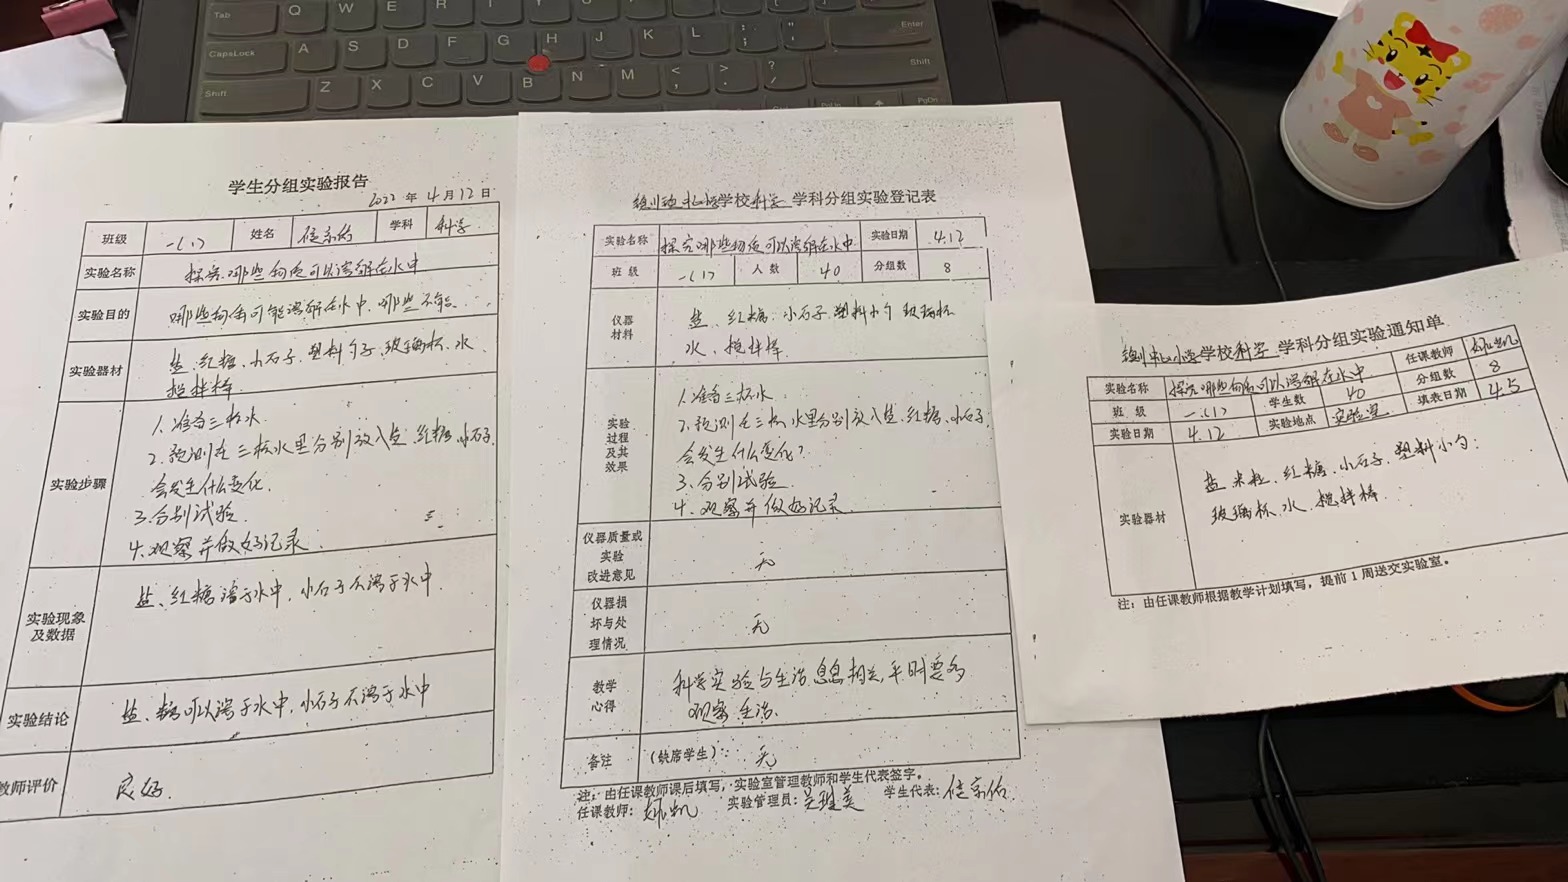 Tab Q W E R T Y U I O P
CapsLock A S D F G H J K L Enter
Shift Z X C V B N M Shift
PgDn
学生分组实验报告
2022 年 4 月 12 日
班级 一(1) 姓名 学科 科学
实验名称 探究哪些物质可以溶解在水中
实验目的 哪些物质可能溶解在水中,哪些不能.
实验器材 盐、红糖、小石子、塑料勺子、玻璃杯、水、
搅拌棒
实验步骤
1.准备三杯水.
2.预测在三杯水里分别放入盐、红糖、小石子.
会发生什么变化.
3.分别试验.
4.观察并做好记录.
实验现象及数据 盐、红糖溶于水中,小石子不溶于水中.
实验结论 盐、糖可以溶于水中,小石子不溶于水中
教师评价 良好.
学校科学 学科分组实验登记表
实验名称 探究哪些物质可以溶解在水中 实验日期 4.12
班 级 一(1) 人 数 40 分组数 8
仪器材料 盐、红糖、小石子 塑料小勺 玻璃杯
水、搅拌棒.
实验过程及其效果
1.准备三杯水.
2.预测在三杯水里分别放入盐、红糖、小石子.
会发生什么变化?
3.分别试验.
4.观察并做好记录.
仪器质量或实验改进意见 无
仪器损坏与处理情况 无
教学心得 科学实验与生活息息相关,平时要多
观察生活.
备注 (缺席学生): 无
注:由任课教师课后填写,实验室管理教师和学生代表签字。
任课教师: 实验管理员: 学生代表:
小学学校科学 学科分组实验通知单
实验名称 探究哪些物质可以溶解在水中 任课教师
班 级 一(1) 学生数 40 分组数 8
实验日期 4.12 实验地点 实验室 填表日期 4.5
实验器材 盐 米粒、红糖、小石子、塑料小勺:
玻璃杯、水、搅拌棒.
注:由任课教师根据教学计划填写,提前1周送交实验室。